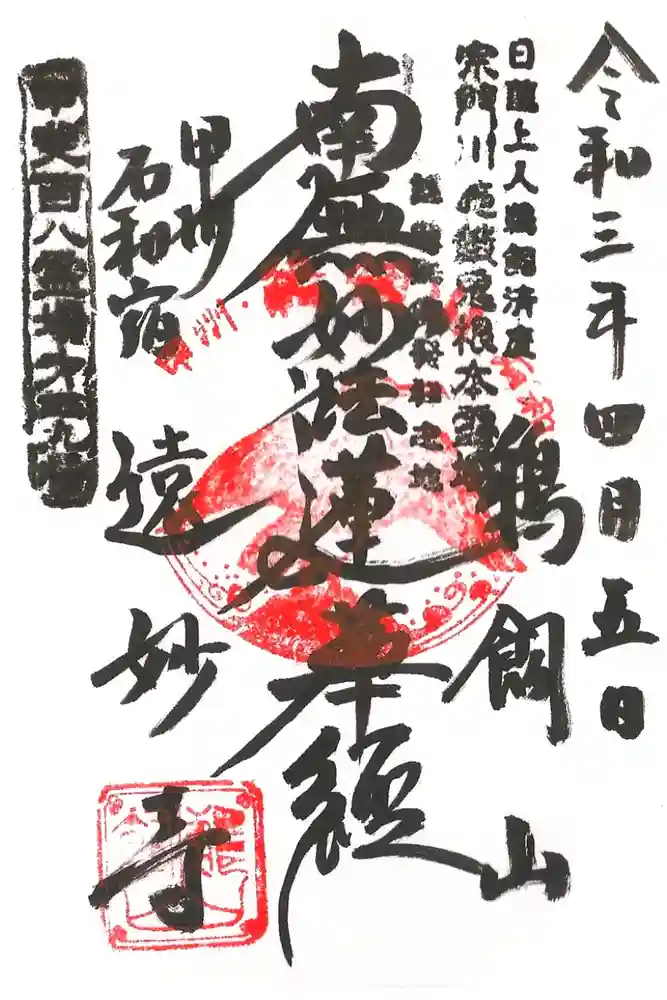 令和三年四月五日
日蓮上人鵜飼済度
宗門川施餓鬼根本霊場
鵜飼山
南無妙法蓮華經
甲州
石和宿
遠妙寺
甲斐百八霊場